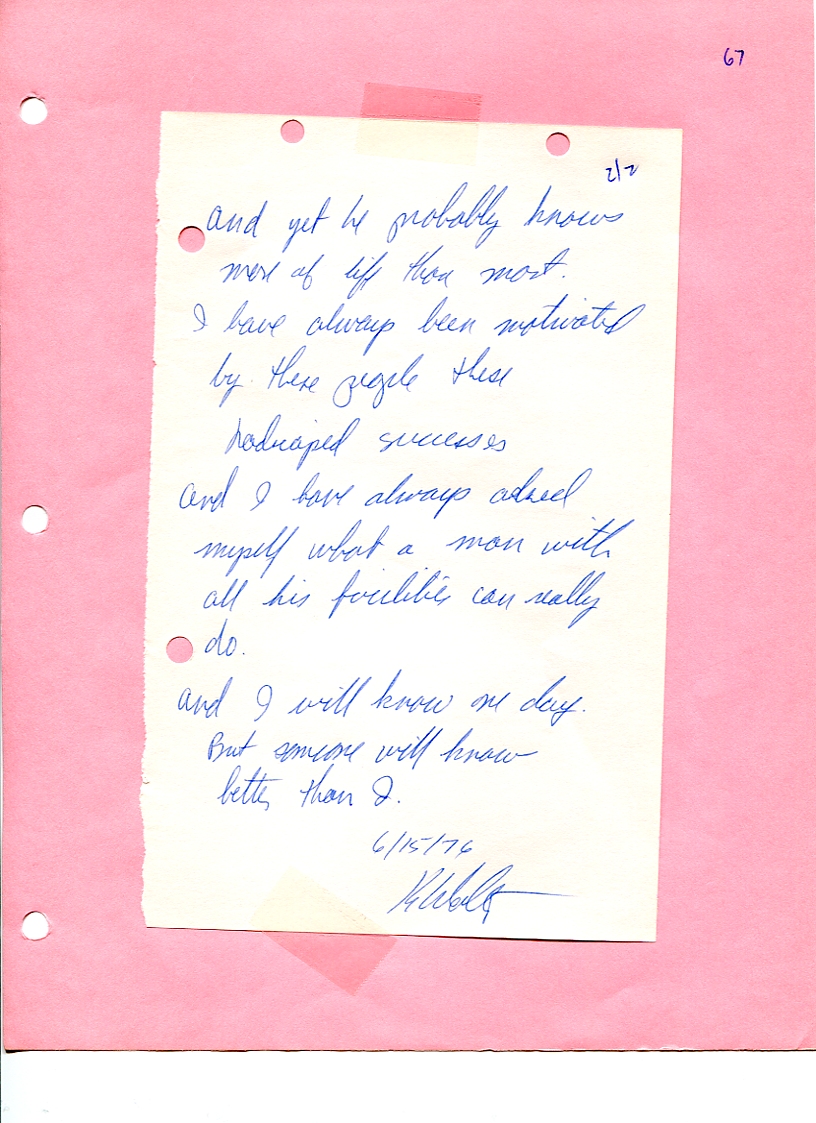 67
2/2
and yet he probably knows
more of life than most.
I have always been motivated
by these people these
hadicaped successes
and I have always asked
myself what a man with
all his facilities can really
do.
and I will know one day.
But someone will know
better than I.
6/15/76